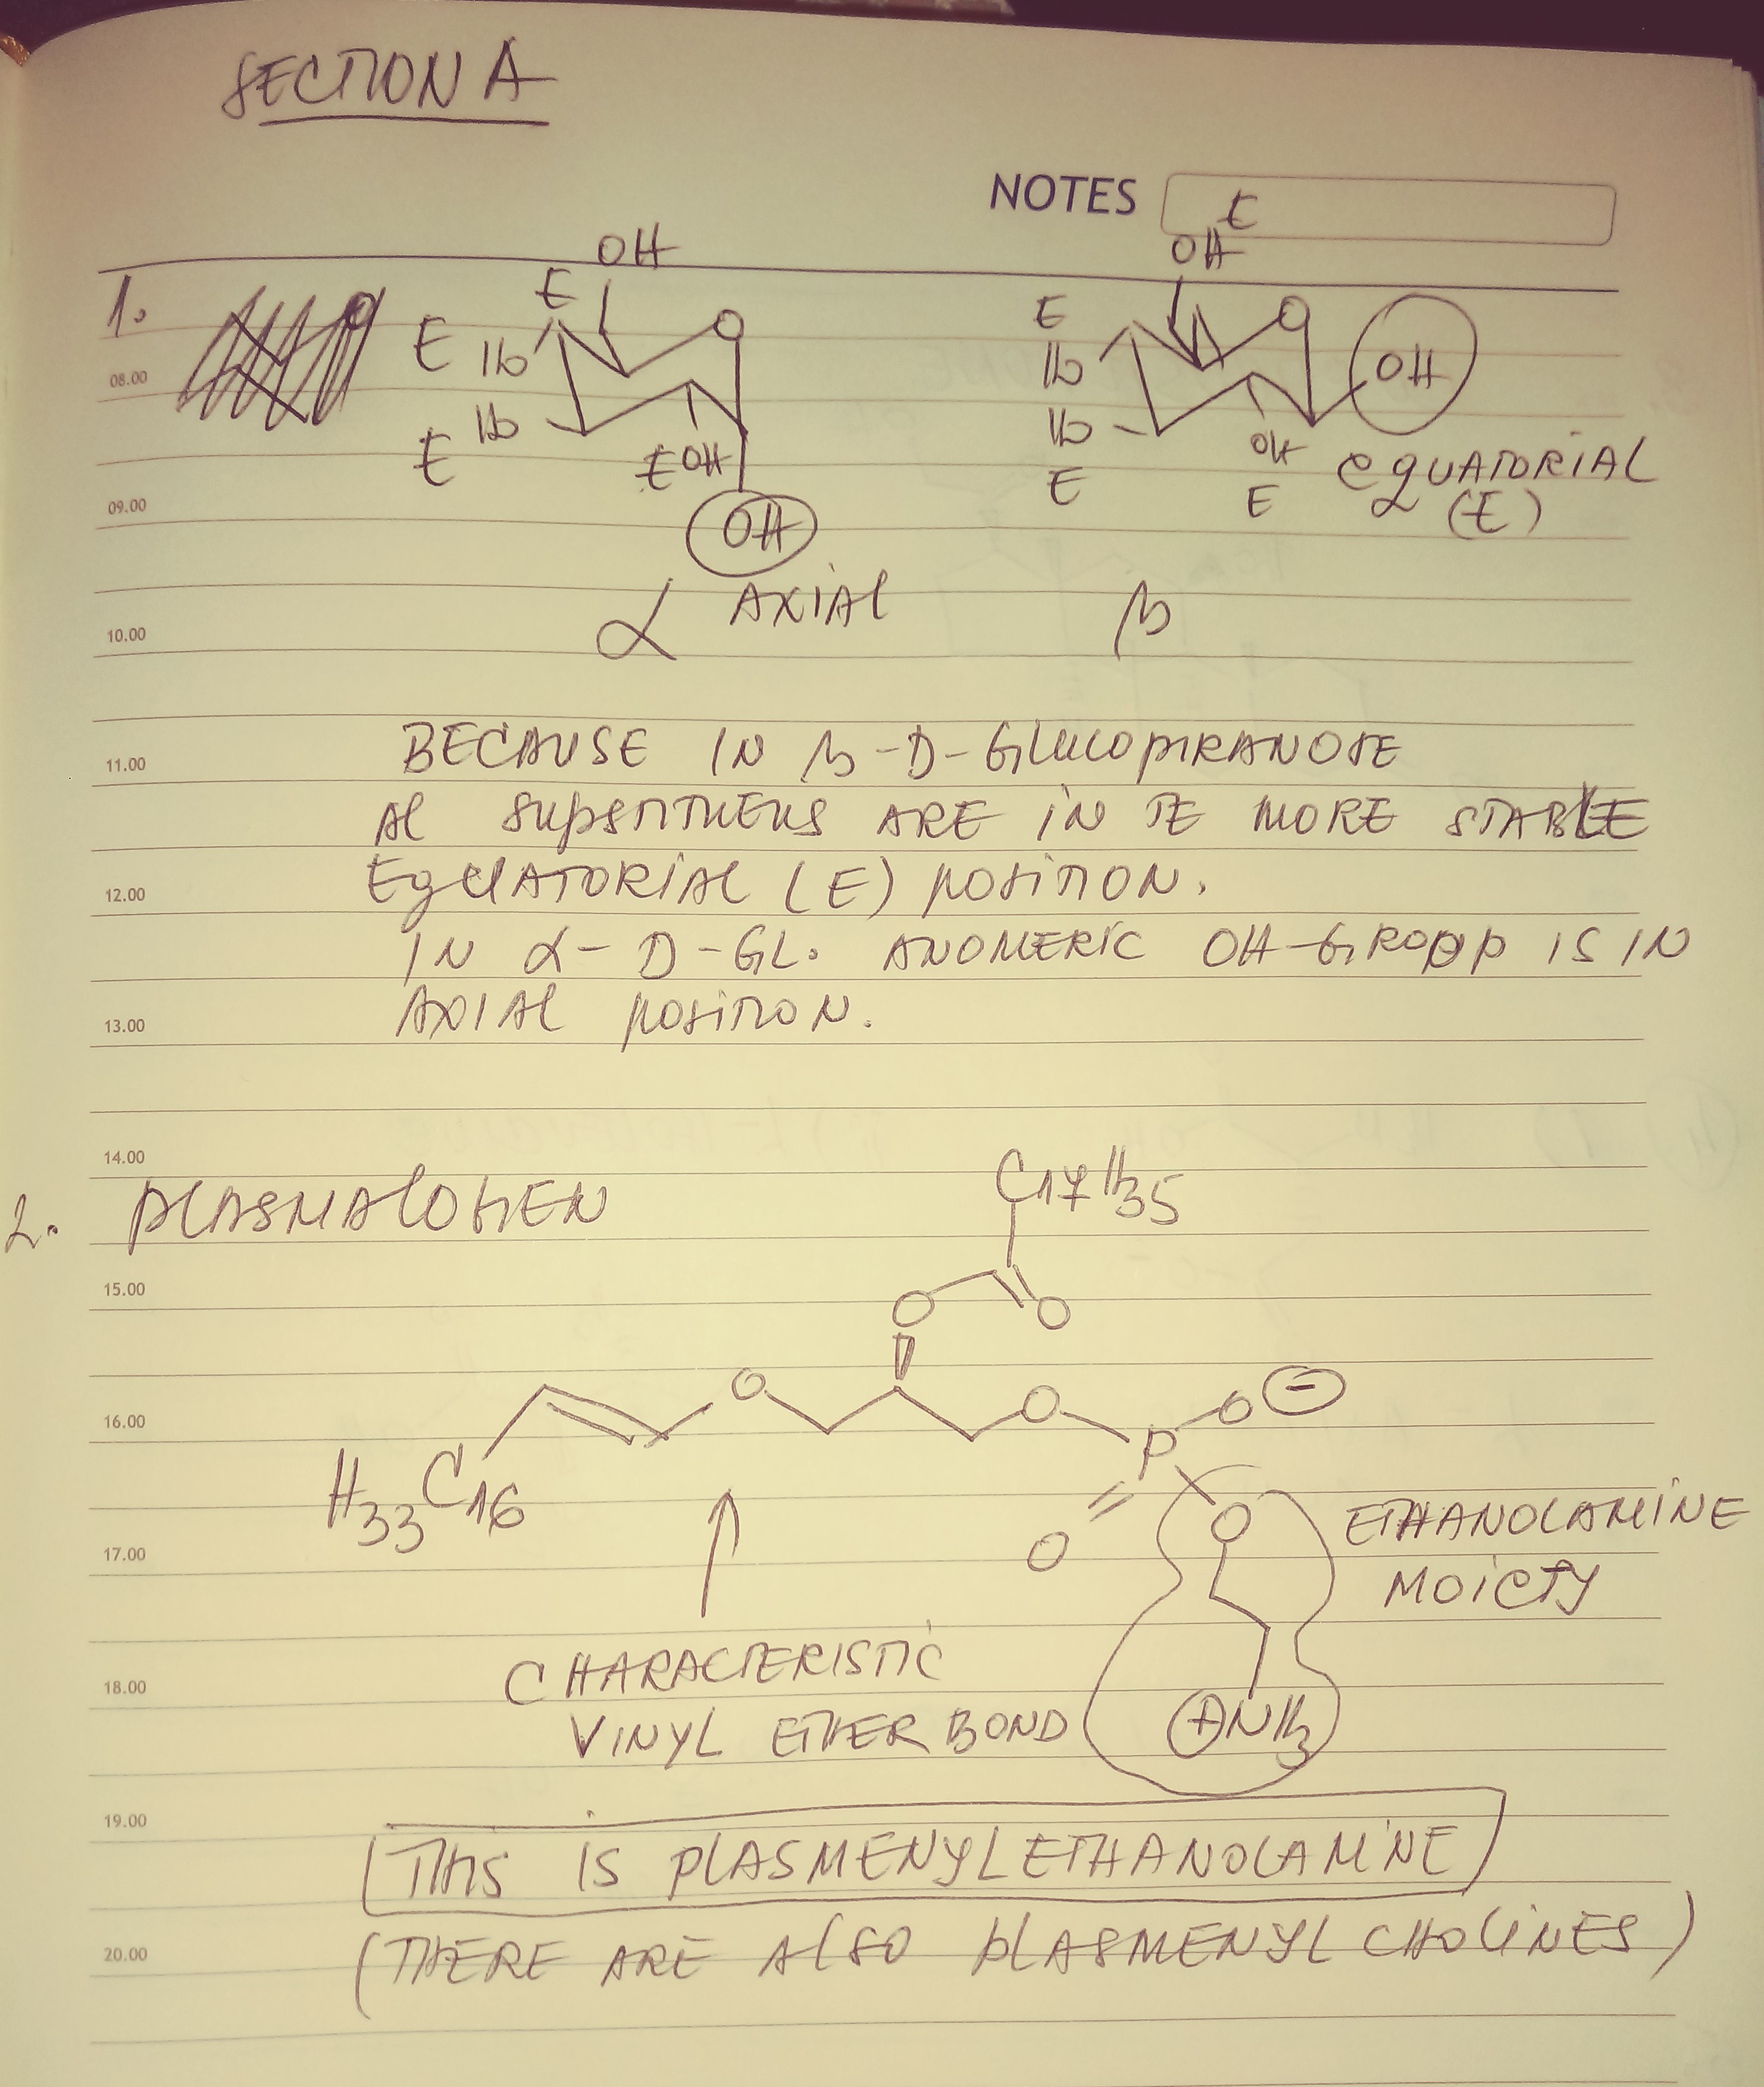 SECTION A
NOTES
E
OH
OH
1.
E
O
E
O
E
HO
HO
OH
08.00
E
HO
HO
E OH
OH
EQUATORIAL
E
E
(E)
09.00
OH
α AXIAL
β
10.00
BECAUSE IN β-D-GLUCOPIRANOSE
11.00
Al SUPSTITUENS ARE IN TE MORE STABLE
EQUATORIAL (E) POSITION.
12.00
IN α-D-GL. ANOMERIC OH-GROPP IS IN
AXIAL POSITION.
13.00
14.00
C17H35
2. PLASMALOGEN
15.00
O
O
O
O
O
-
16.00
P
H33C16
O
ETHANOLAMINE
O
17.00
MOIETY
CHARACTERISTIC
18.00
VINYL ETHER BOND
+NH3
19.00
THIS IS PLASMENYLETHANOLAMINE
(THERE ARE ALSO PLASMENYLCHOLINES)
20.00